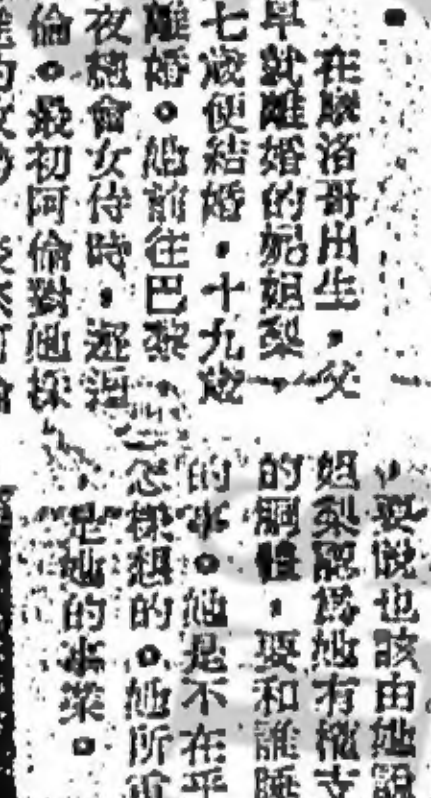 在摩洛哥出生，父
早就離婚的妮妲梨
七歲便結婚，十九歲
離婚。她前往巴黎
夜總會女侍時，邂逅
倫。最初阿倫對她採
要說也該由她說
妲梨認為她有權支
的胴體，要和誰睡
的事。她是不在乎
怎樣想的。她所
是她的事業。